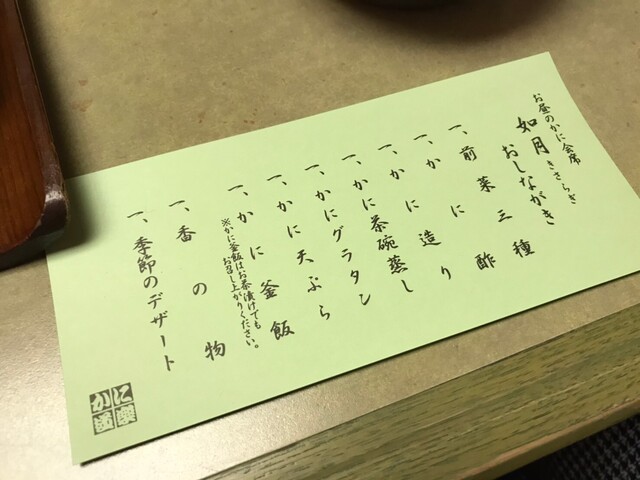 お昼のかに会席
如月 きさらぎ
おしながき
一、前菜三種
一、かに酢
一、かに造り
一、かに茶碗蒸し
一、かにグラタン
一、かに天ぷら
一、かに釜飯
※かに釜飯はお茶漬けでも
お召し上がりください。
一、香の物
一、季節のデザート
かに道楽